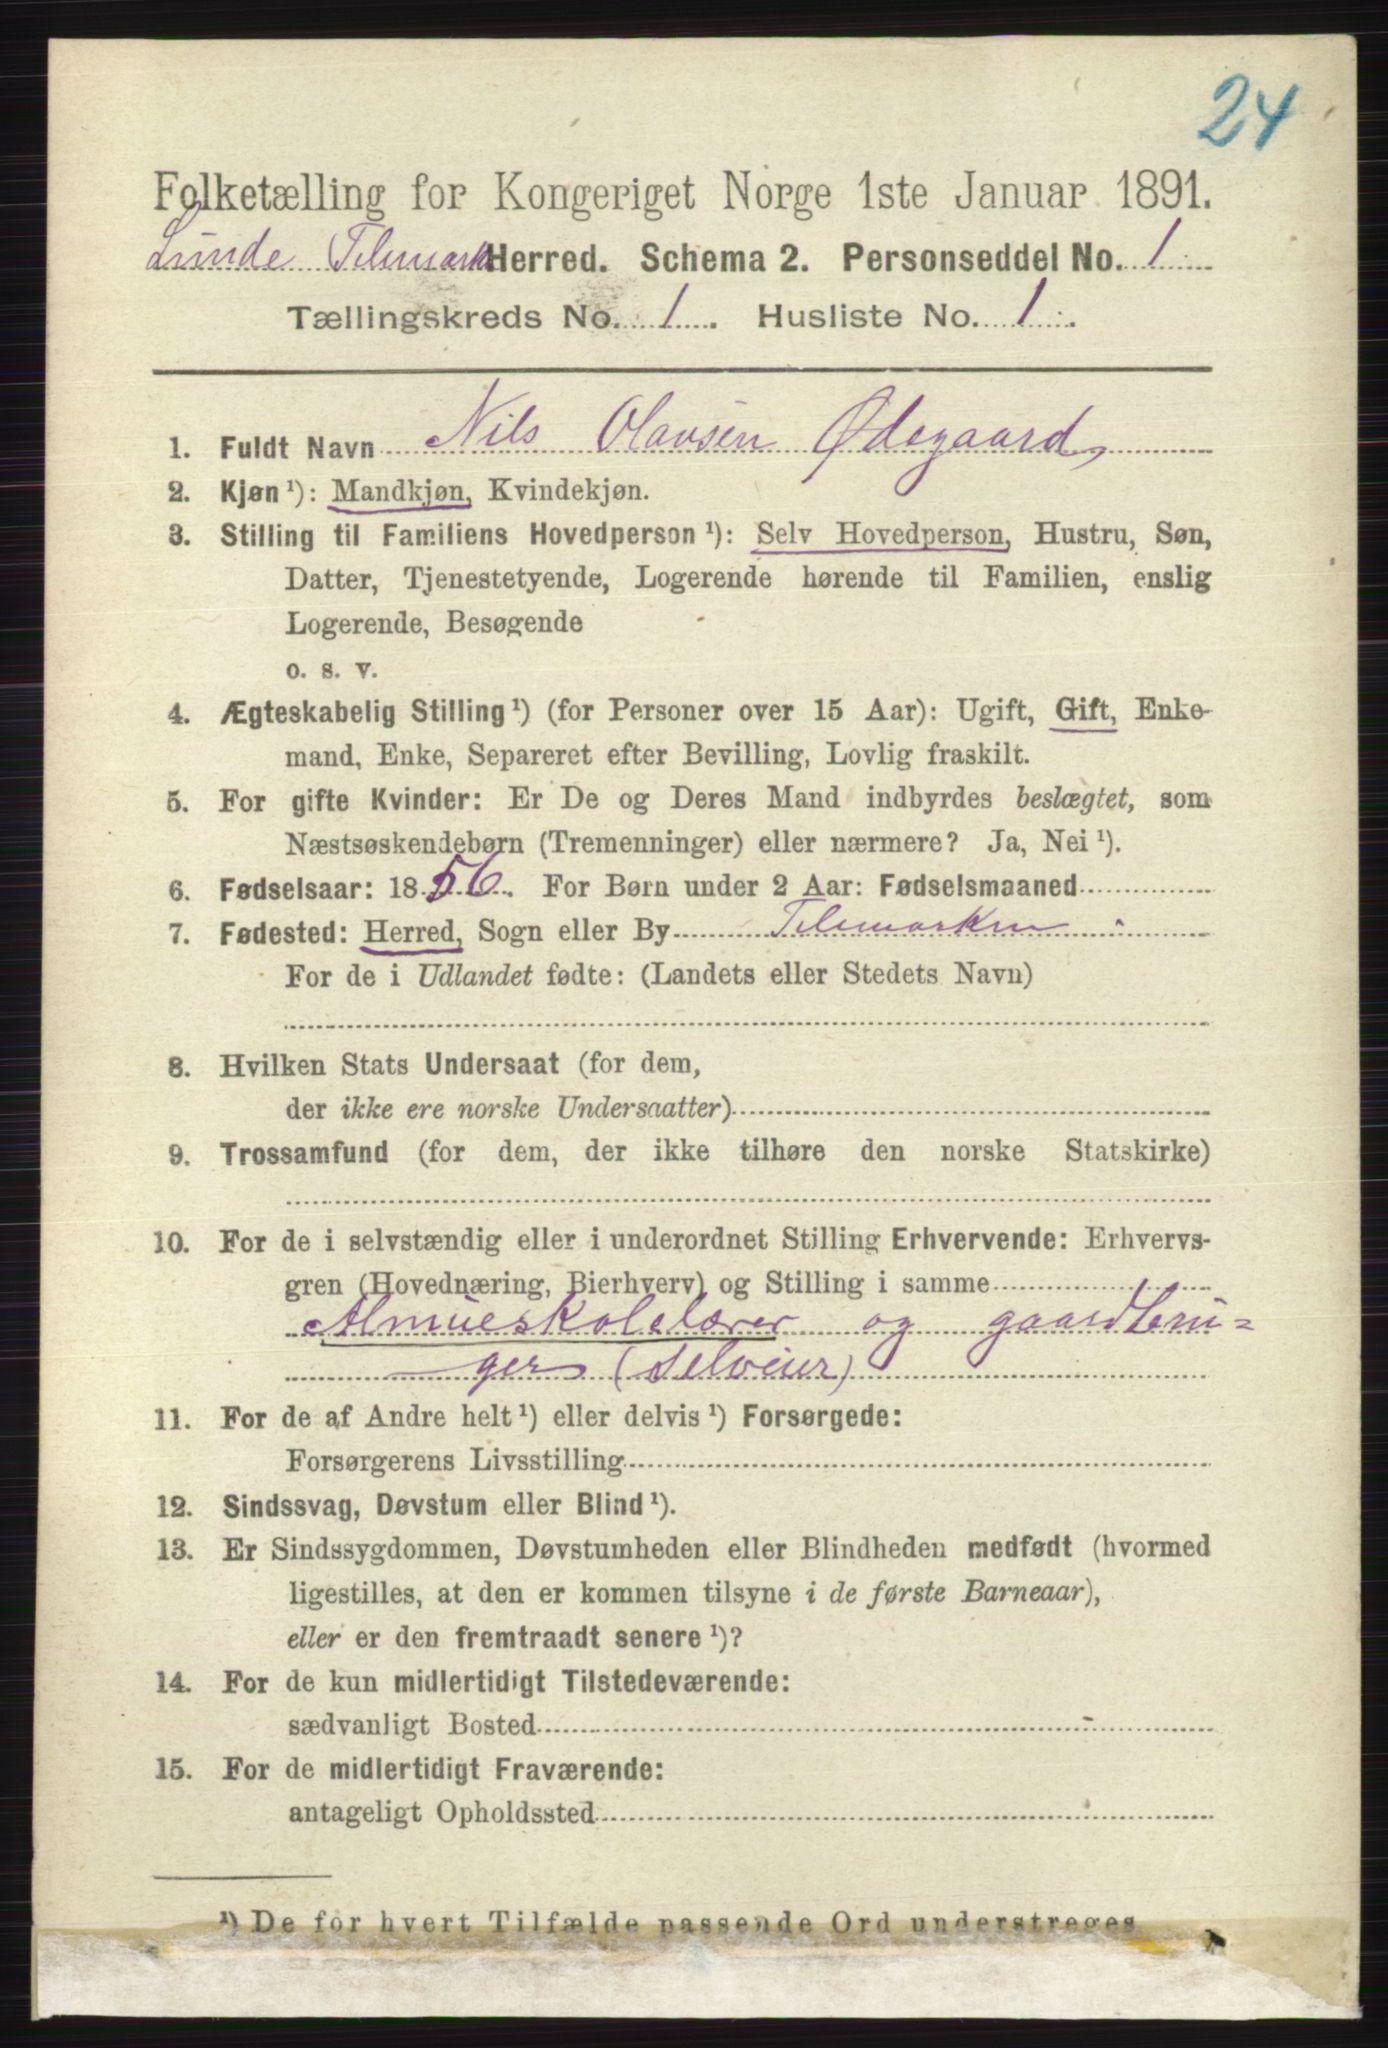 24
Folketælling for Kongeriget Norge 1ste Januar 1891.
Lunde Telemark Herred. Schema 2. Personseddel No. 1
Tællingskreds No. 1. Husliste No. 1.
1. Fuldt Navn Nils Olavsen Ødegaard
2. Kjøn¹): Mandkjøn, Kvindekjøn.
3. Stilling til Familiens Hovedperson¹): Selv Hovedperson, Hustru, Søn,
Datter, Tjenestetyende, Logerende hørende til Familien, enslig
Logerende, Besøgende
o. s. v.
4. Ægteskabelig Stilling¹) (for Personer over 15 Aar): Ugift, Gift, Enke-
mand, Enke, Separeret efter Bevilling, Lovlig fraskilt.
5. For gifte Kvinder: Er De og Deres Mand indbyrdes beslægtet, som
Næstsøskendebørn (Tremenninger) eller nærmere? Ja, Nei¹).
6. Fødselsaar: 1856. For Børn under 2 Aar: Fødselsmaaned
7. Fødested: Herred, Sogn eller By Telemarken
For de i Udlandet fødte: (Landets eller Stedets Navn)
8. Hvilken Stats Undersaat (for dem,
der ikke ere norske Undersaatter)
9. Trossamfund (for dem, der ikke tilhøre den norske Statskirke)
10. For de i selvstændig eller i underordnet Stilling Erhvervende: Erhvervs-
gren (Hovednæring, Bierhverv) og Stilling i samme
Almueskolelærer og gaardbru=
ger (selveier)
11. For de af Andre helt¹) eller delvis¹) Forsørgede:
Forsørgerens Livsstilling
12. Sindssvag, Døvstum eller Blind¹).
13. Er Sindssygdommen, Døvstumheden eller Blindheden medfødt (hvormed
ligestilles, at den er kommen tilsyne i de første Barneaar),
eller er den fremtraadt senere¹)?
14. For de kun midlertidigt Tilstedeværende:
sædvanligt Bosted
15. For de midlertidigt Fraværende:
antageligt Opholdssted
¹) De for hvert Tilfælde passende Ord understreges